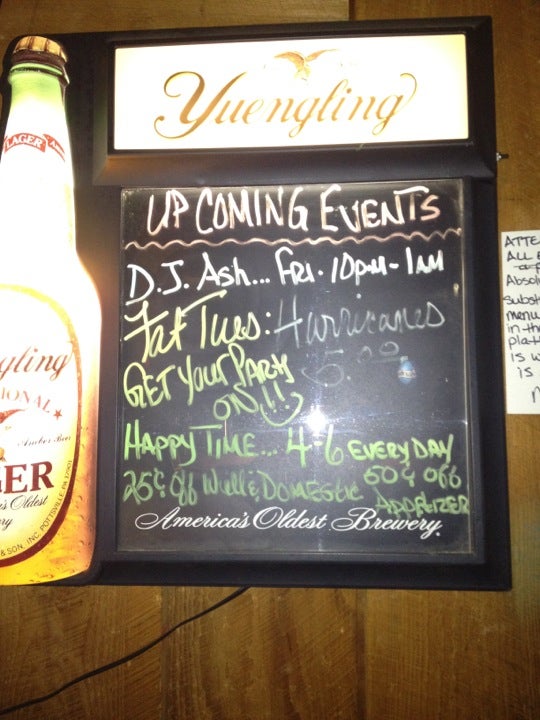 Yuengling
UP COMING EVENTS
D.J. Ash... FRI. 10PM-1AM
Fat Tues: Hurricanes
5.00
GET YOUR PARTY
ON!!
HAPPY TIME... 4-6 EVERYDAY
25¢ off Well & DOMESTIC 50¢ off
APPETIZER
America's Oldest Brewery.
LAGER
gling
IONAL
Amber Beer
ER
's Oldest
ry
& SON, INC. POTTSVILLE, PA 17901
ATTE
ALL E
Absol
subst
menu
in-th
plat
is w
is